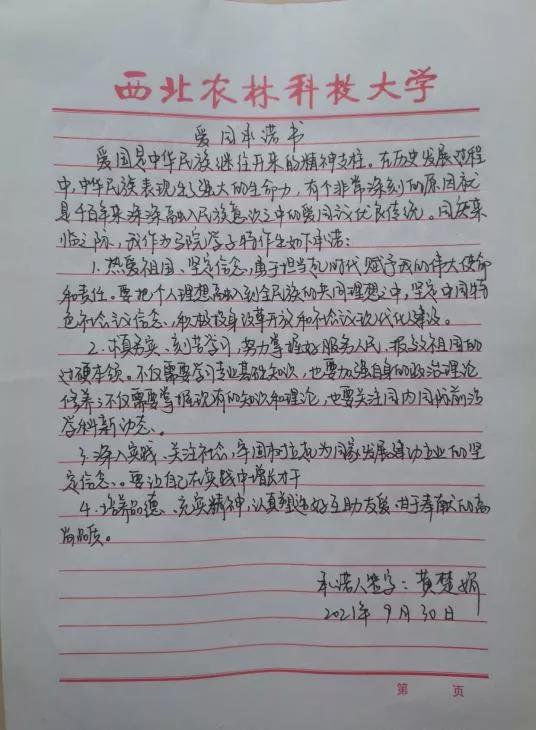 西北农林科技大学
爱国承诺书
爱国是中华民族继往开来的精神支柱。在历史发展过程
中,中华民族表现出了强大的生命力,有个非常深刻的原因就
是千百年来深深融入民族意识之中的爱国主义优良传统。国庆来
临之际,我作为学院学子特作出如下承诺:
1.热爱祖国、坚定信念,勇于担当起时代赋予我的伟大使命
和责任。要把个人理想融入到全民族的共同理想之中,坚定中国特
色社会主义信念、积极投身改革开放和社会主义现代化建设。
2.求真务实、刻苦学习,努力掌握好服务人民、报效祖国的
过硬本领。不仅需要学习专业基础知识,也要加强自身的政治理论
修养;不仅需要掌握现有的知识和理论,也要关注国内国际前沿
学科新动态、
3.深入实践、关注社会,牢固树立起为国家发展建功立业的坚
定信念、。要让自己在实践中增长才干
4.培养品德、充实精神,认真塑造好互助友爱、甘于奉献的高
尚品质。
承诺人签字:黄楚娟
2021年9月30日
第 页